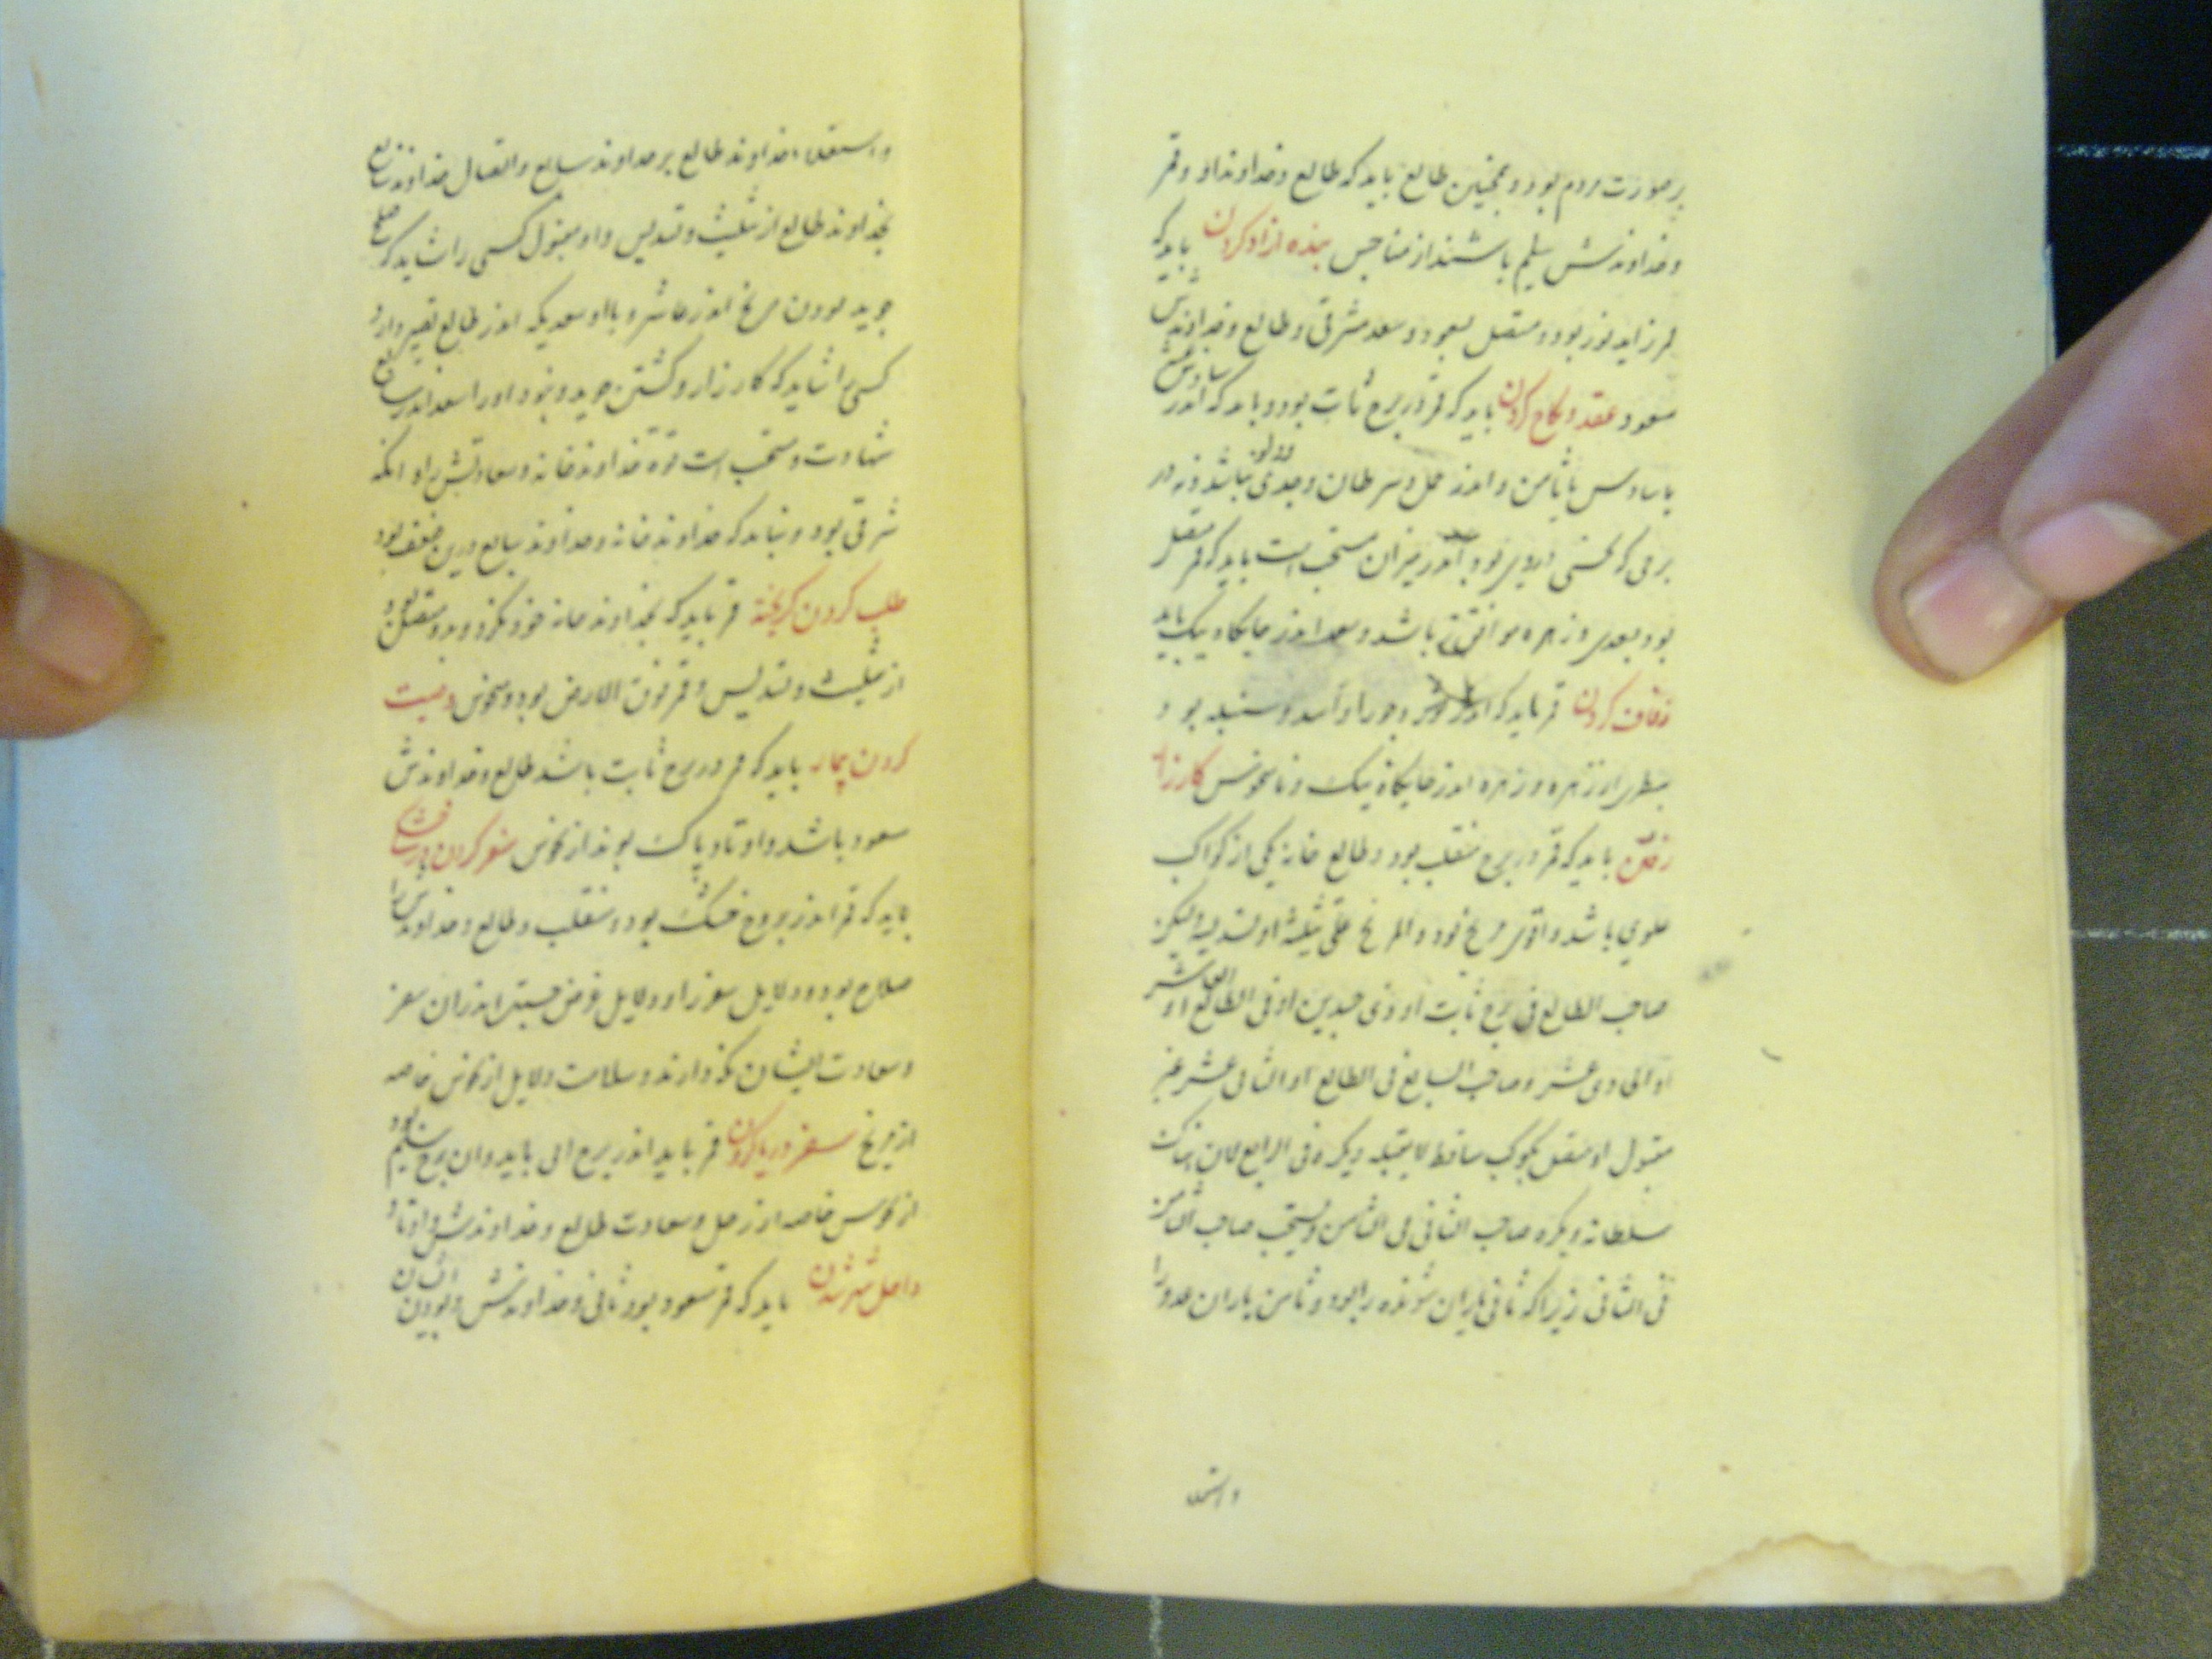 بر صورت مردم بود و همچنین طالع باید که طالع و خداوند او و قمر
و خداوندش سلیم باشند از مناحس بنده ازاد کردن باید که
قمر زاید نور بود و متصل بسعود و سعد مشرقی و طالع و خداوندش
مسعود عقد و نکاح کردن باید که قمر در برج ثابت بود و باید که اندر سادس عشر
یا سادس یا ثامن و اندر حمل و سرطان و جدی و دلو نباشد و نه در
برجی که نحسی اندر وی بود اندر میزان مستحب است باید که قمر متصل
بود بسعدی و زهره موافق باشد و سعد اندر جایگاه نیک باید
زفاف کردن قمر باید که اندر ثور و جوزا و اسد و سنبله بود و
بنظر از زهره و زهره اندر جایگاه نیک و نامنحوس کارزار
رفتن باید که قمر در برج منقلب بود و طالع خانه یکی از کواکب
علوی باشد و اقوی مریخ بود و المریخ علی تثلیثه او تسدیسه ولیکن
صاحب الطالع فی برج ثابت او ذی جسدین او فی الطالع او العاشر
او الحادی عشر و صاحب السابع فی الطالع او الثانی عشر غیر
مقبول او متصل بکوکب ساقط لا یقبله ویکره فی الرابع لان هناک
سلطانه ویکره صاحب الثانی فی الثامن ویستحب صاحب الثامن
فی الثانی زیرا که ثانی یاران شونده را بود و ثامن یاران عدو را
و استعلاء
و استعلاء خداوند طالع بر خداوند سابع و اتصال خداوند سابع
بخداوند طالع از تثلیث و تسدیس و او مقبول کسی را شاید که صلح
جوید بودن مریخ اندر عاشر و با او سعدیکه اندر طالع نصیر دارد
کسی را شاید که کارزار و کشتن جوید و نبود او را سعد اندر سابع
شهادت و مستحب است قوة خداوند خانه و سعادتش و انکه
شرقی بود و نباید که خداوند خانه و خداوند سابع درین ضعف بود
طلب کردن کریخته قمر باید که بخداوند خانه خود نکرد و بدو متصل بود
از تثلیث و تسدیس و قمر فوق الارض بود و منحوس وصیت
کردن بیمار باید که قمر در برج ثابت باشد طالع و خداوندش
مسعود باشد و اوتاد پاک بود از نحوس سفر کردن در خشکی
باید که قمر اندر بروج خشک بود و منقلب و طالع و خداوندش را
صلاح بود و دلایل سفر را و دلایل غرض جستن اندران سفر
و سعادت ایشان نکه دارند و سلامت دلایل از نحوس خاصه
از مریخ سفر دریا کردن قمر باید اندر برج ابی باید و ان برج سلیم بود
از نحوس خاصه از زحل و سعادت طالع و خداوندش و اوتاد
داخل شهر شدن باید که قمر مسعود بود و ثانی و خداوندش و بودن ایشان